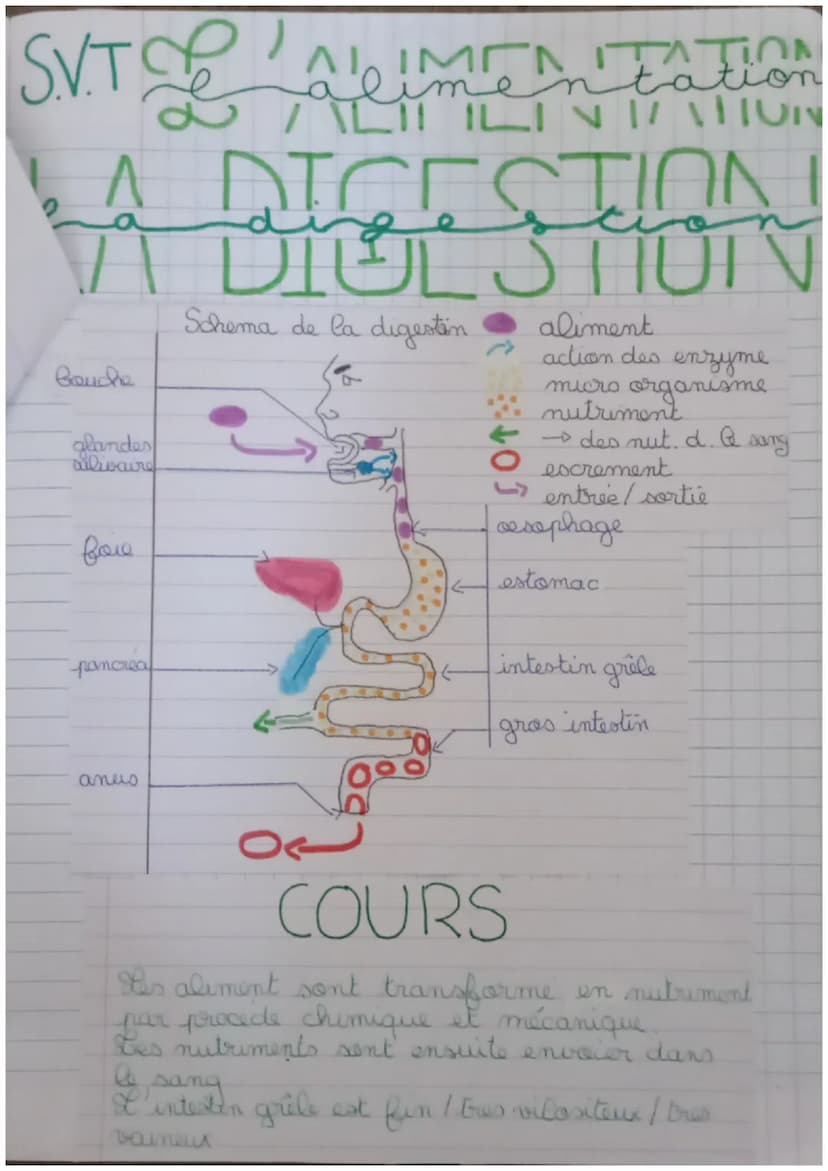 S.V.T L'ALIMENTATION
L'alimentation
LA DIGESTION
la digestion
Schema de la digestin
aliment
action des enzyme
micro organisme
nutriment
→ des nut. d. le sang
escrement
entrée/sortie
bouche
glandes
salivaire
foie
pancréa
anus
oesophage
estomac
intestin grêle
gros intestin
COURS
Les aliment sont transforme en nutriment
par procede chimique et mécanique
Les nutriments sont ensuite envoier dans
le sang
L'intestin grêle est fin / tres vilositeux / tres
vaineux